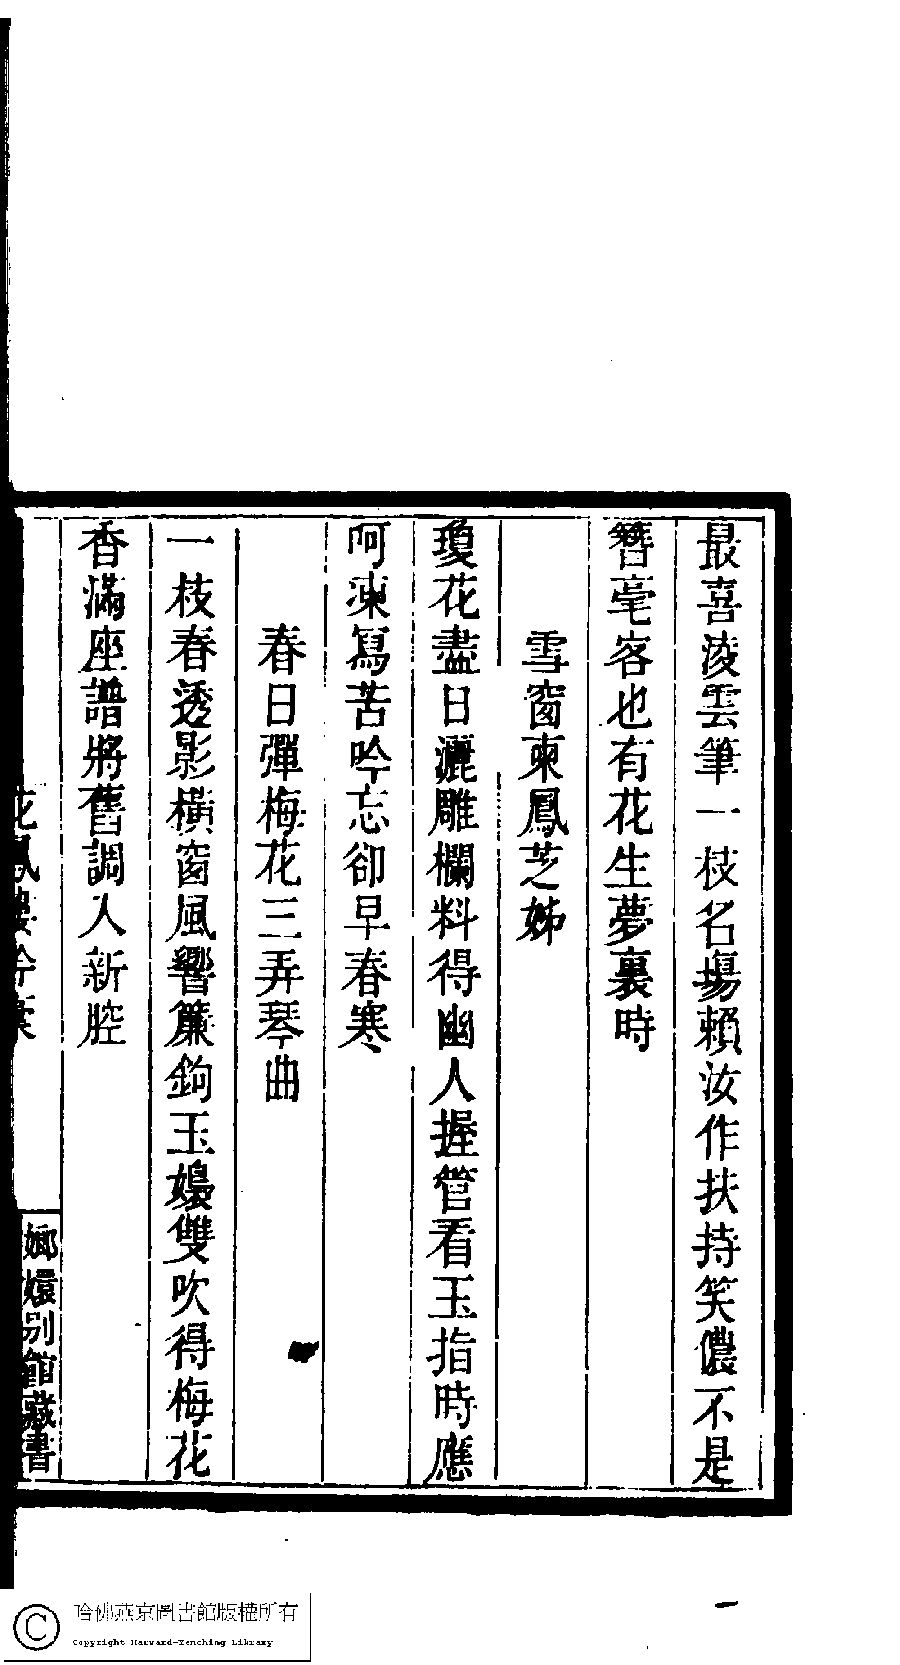 最喜淩雲筆一枝名場賴汝作扶持笑儂不是
簪毫客也有花生夢裏時
雪窗柬鳳芝姊
瓊花盡日灑雕欄料得幽人握管看玉指時應
呵凍寫苦吟忘卻早春寒
春日彈梅花三弄琴曲
一枝春透影橫窗風響簾鉤玉嬝雙吹得梅花
香滿座譜將舊調人新腔
花鳳樓吟稾
嫏嬛別館藏書
哈佛燕京圖書館版權所有
Copyright Harvard-Yenching Library